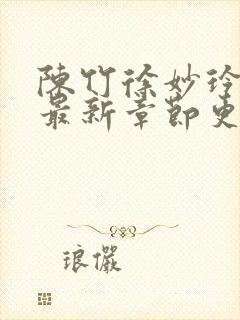 陳竹徐妙玲
最新章節更
琅儼